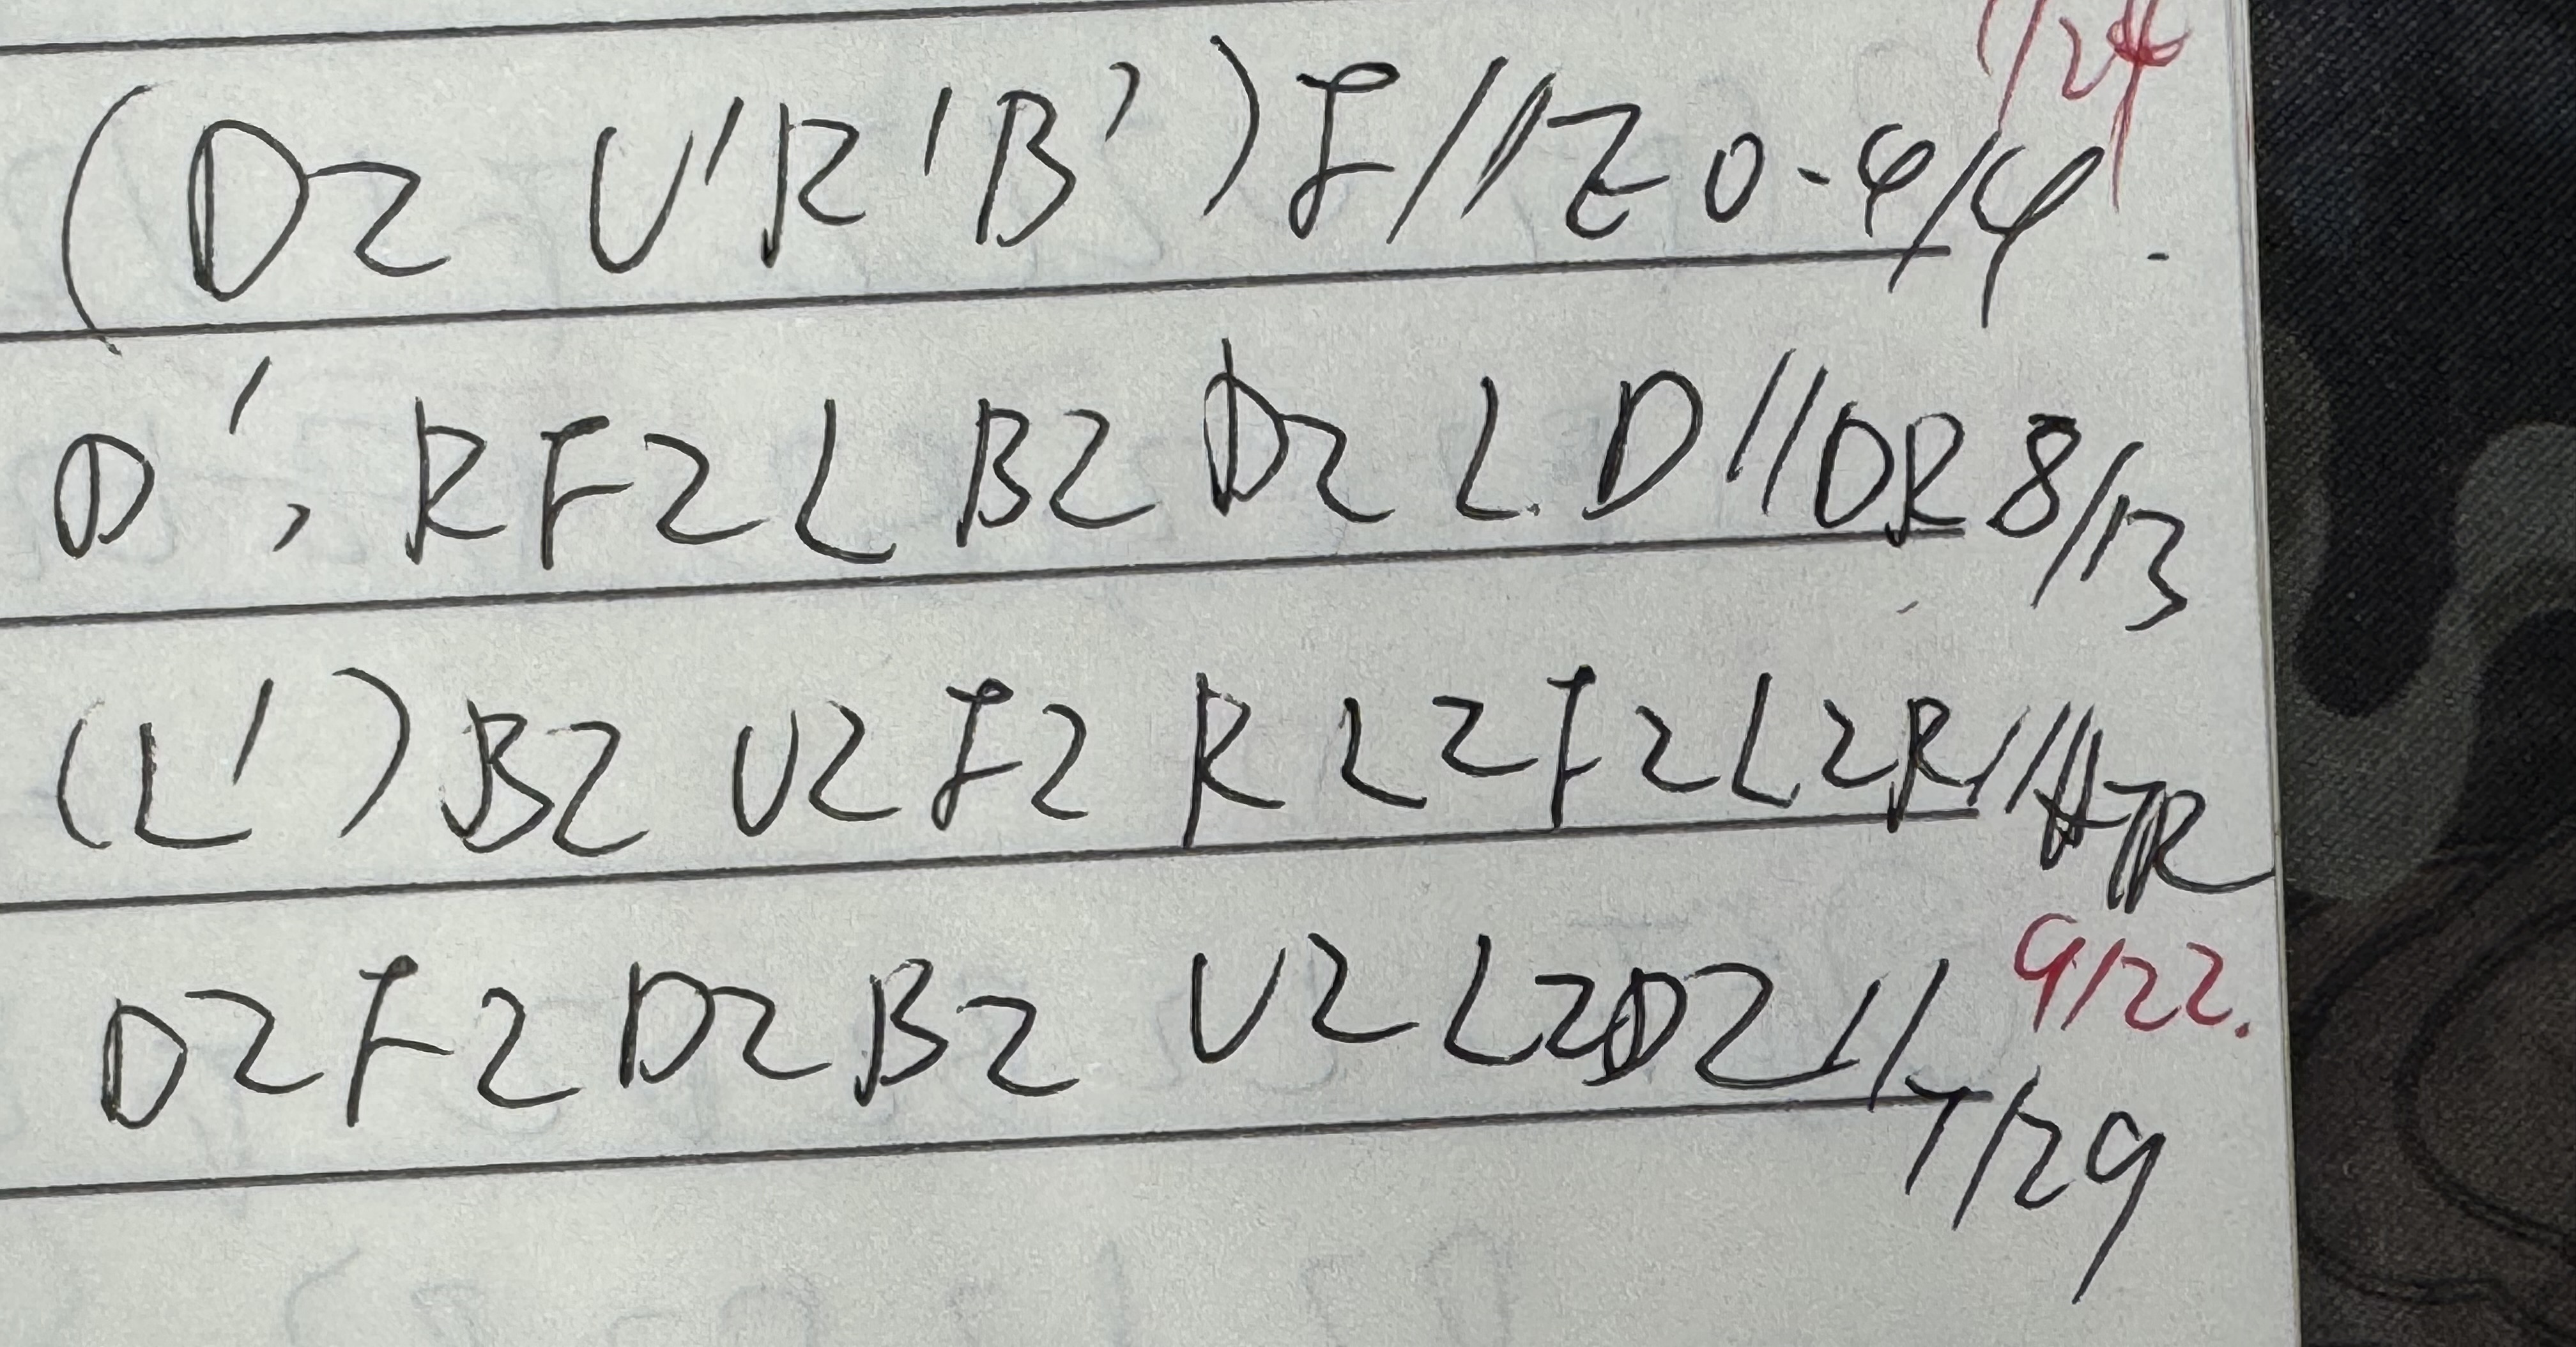 1/24
(D2 U'R'B')F//EO-4/4.
D', R F2 L B2 D2 L D//DR 8/13
(L') B2 U2 F2 R L2 F2 L2 R//HTR
9/22.
D2 F2 D2 B2 U2 L2 D2//7/29